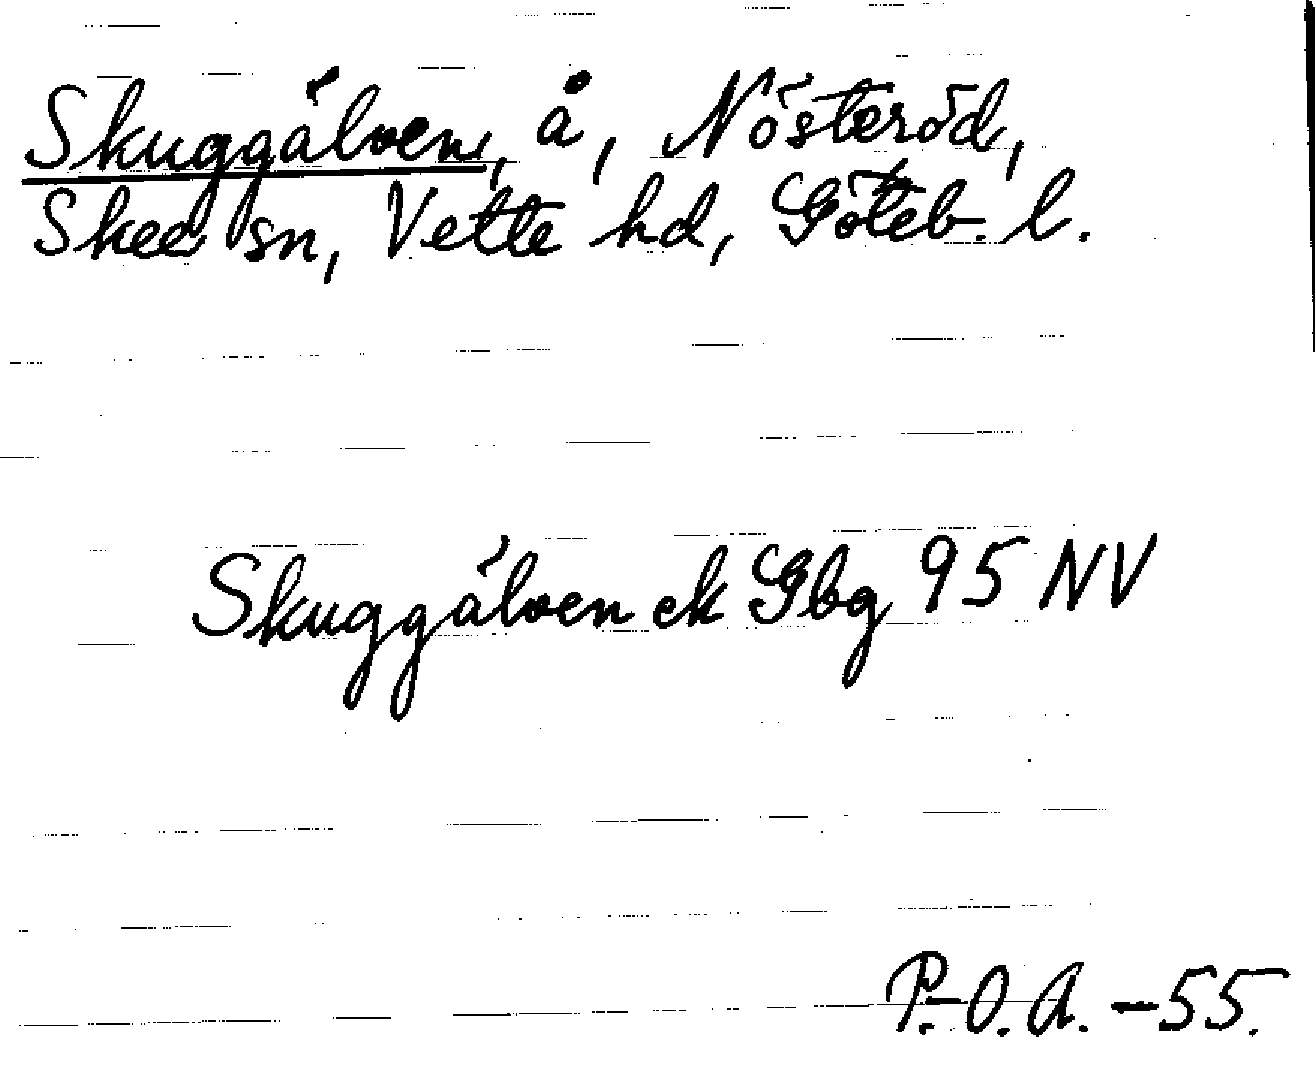 Skuggälven, å, Nösteröd,
Skee sn, Vette hd, Göteb. l.
Skuggälven ek Gbg 95 NV
P.-O. A. -55.